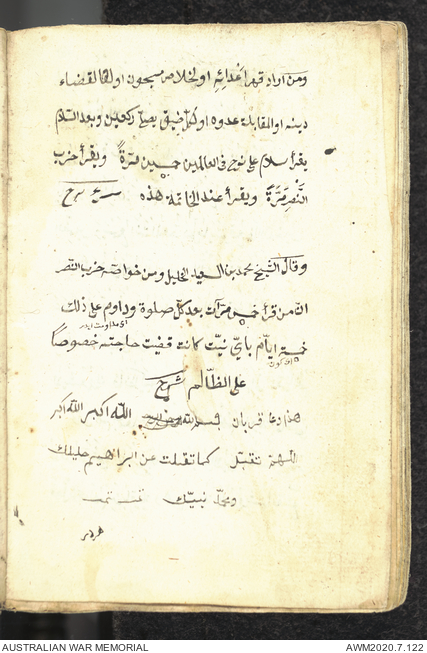 ومن اراد قهر اعدائه او لخلاص مسجون او لقضاء
دينه او لمقابلة عدوه او كل ضيق يصلي ركعتين وبعد السلام
يقرأ سلام على نوح في العالمين خمسين مرّة ويقرأ حزب
النّصر مرّة ويقرأ عند الخاتمة هذه
وقال الشيخ محمد بن السعيد الخليل ومن خواصّه حزب النصر
انّ من قرأ خمس مرّات بعد كلّ صلوة وداوم على ذلك
خمسة ايّام بايّ نيّت كانت قضيت حاجته خصوصاً
على الظالم شرح
هذا دعا قربان بسم الله الله اكبر الله اكبر
اللهمّ تقبّل كما تقبلت عن ابراهيم خليلك
ومحمّد نبيّك تمت تمت
AUSTRALIAN WAR MEMORIAL
AWM2020.7.122